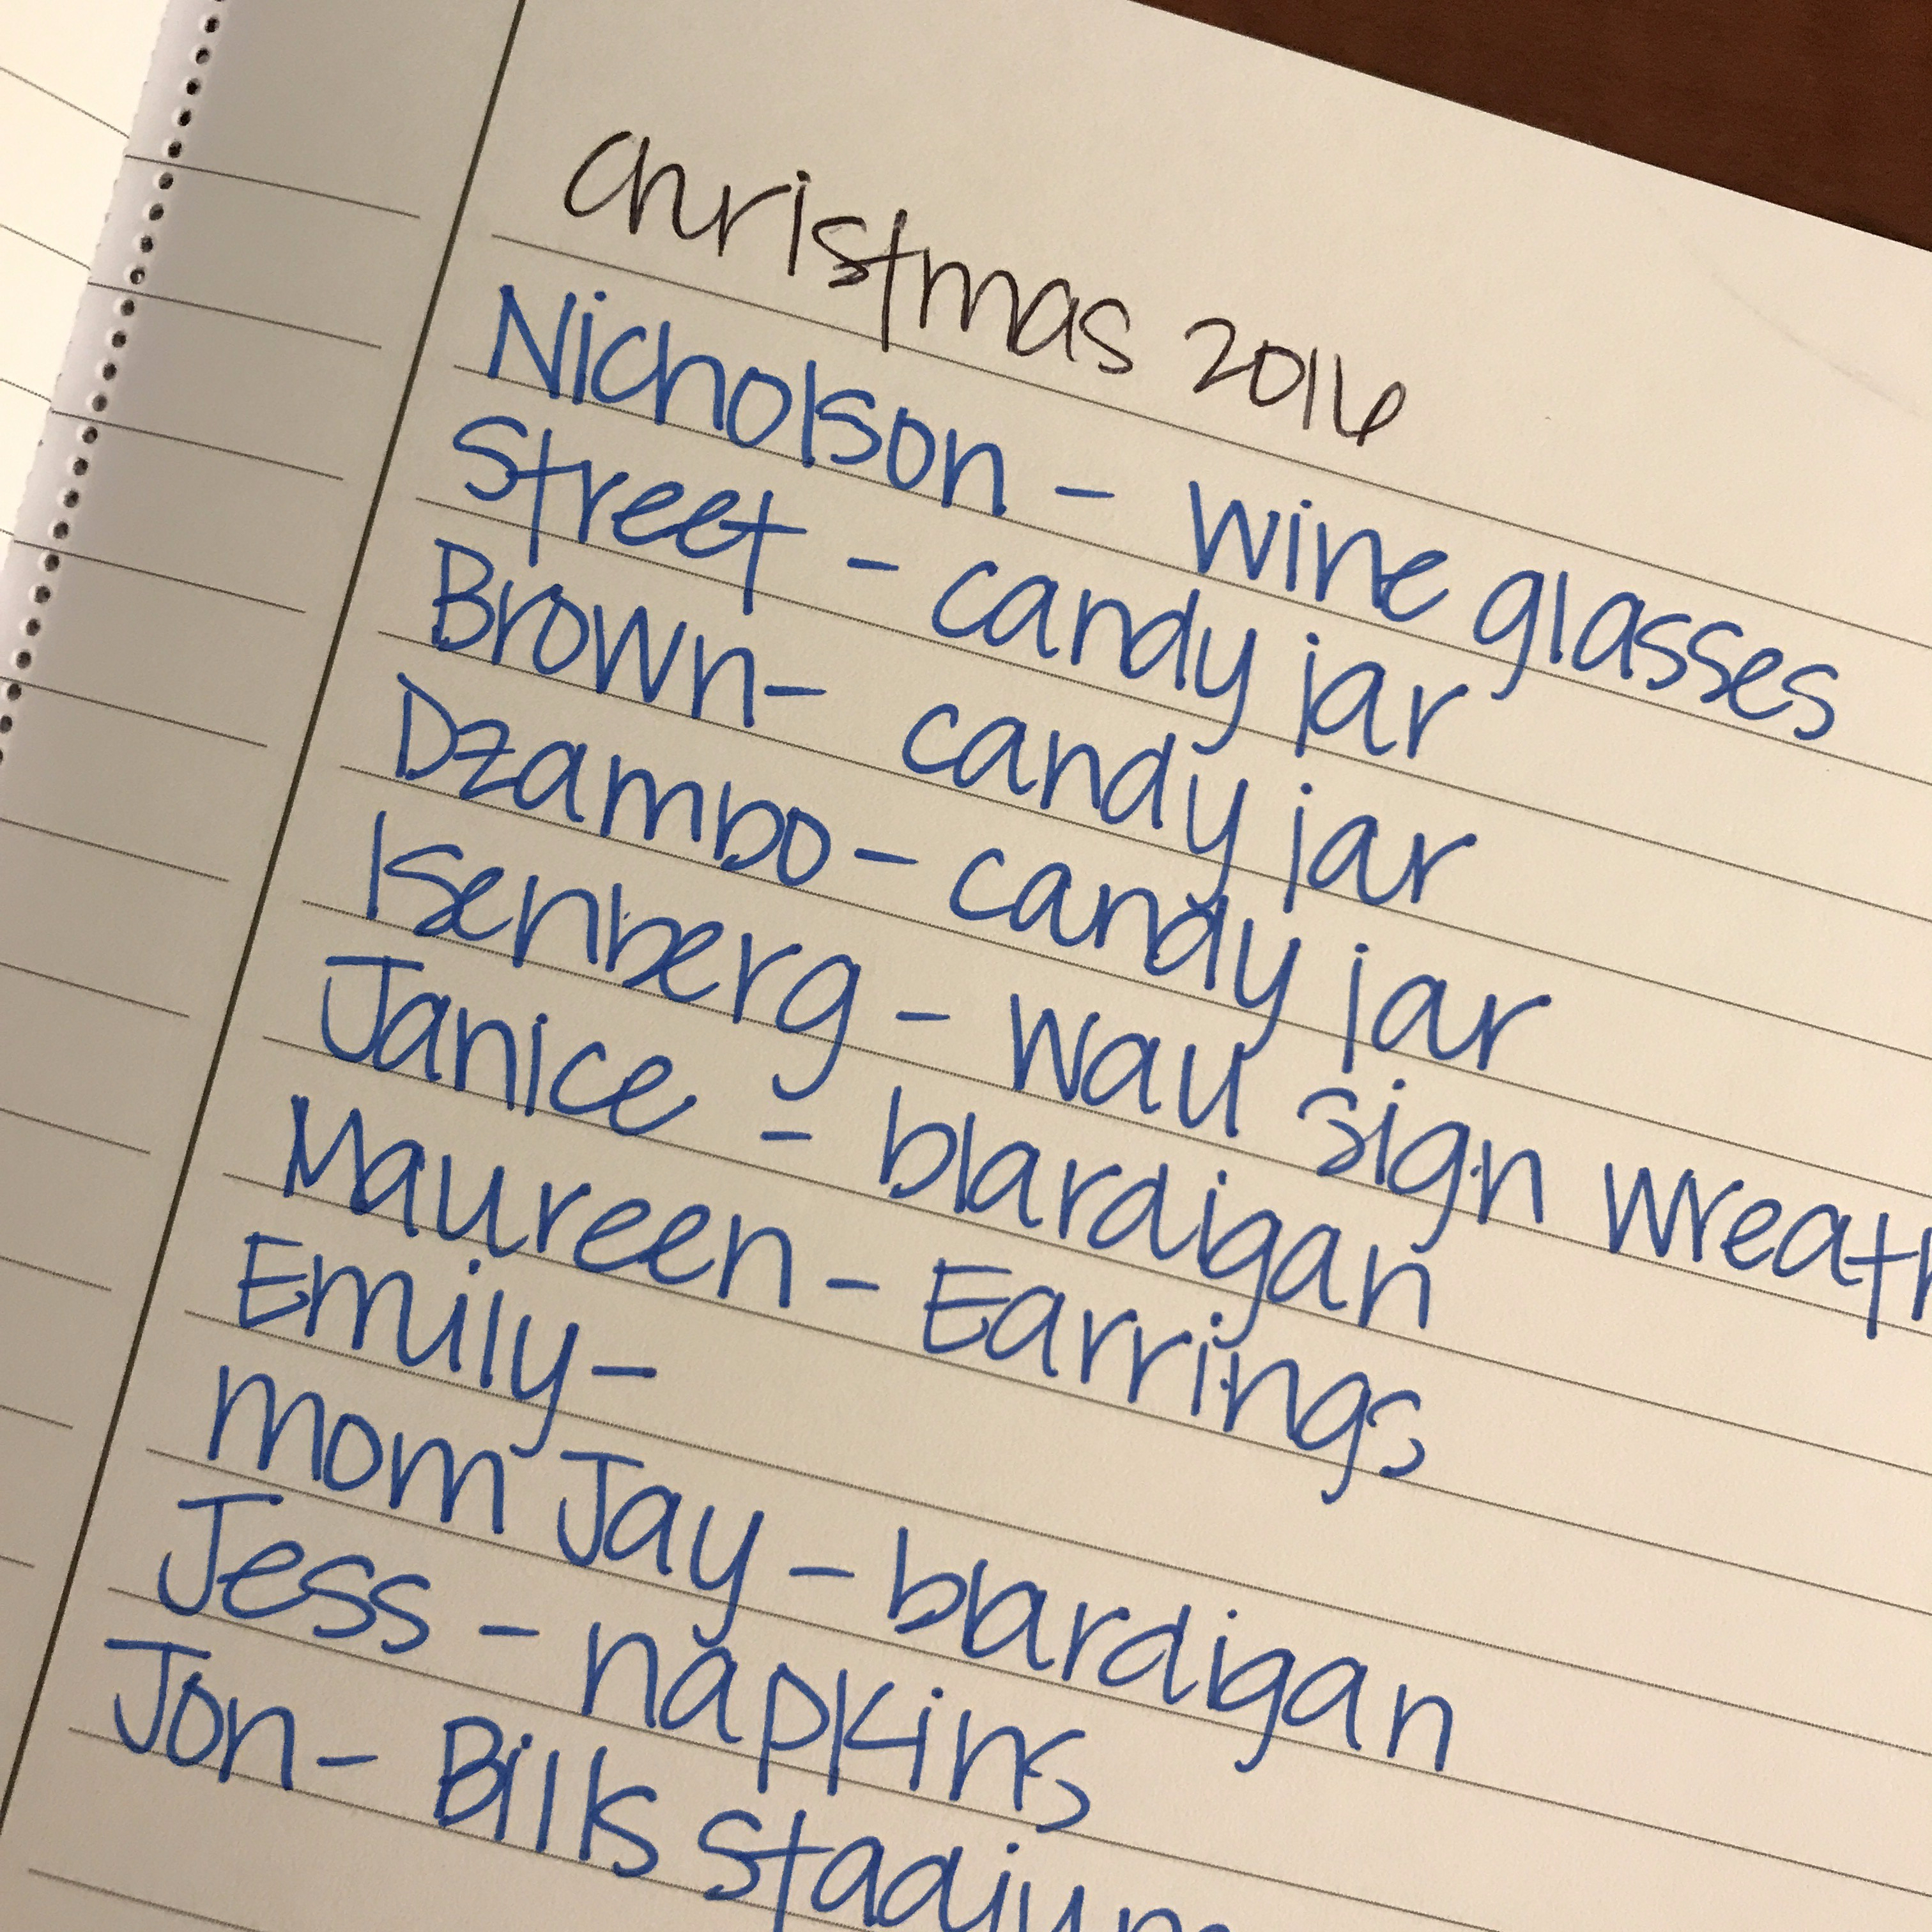 Christmas 2016
Nicholson - wine glasses
Street - candy jar
Brown - candy jar
Dzambo - candy jar
Isenberg - wau sign wreath
Janice - blardigan
Maureen - Earrings
Emily -
mom Jay - blardigan
Jess - napkins
Jon - Bills stadium